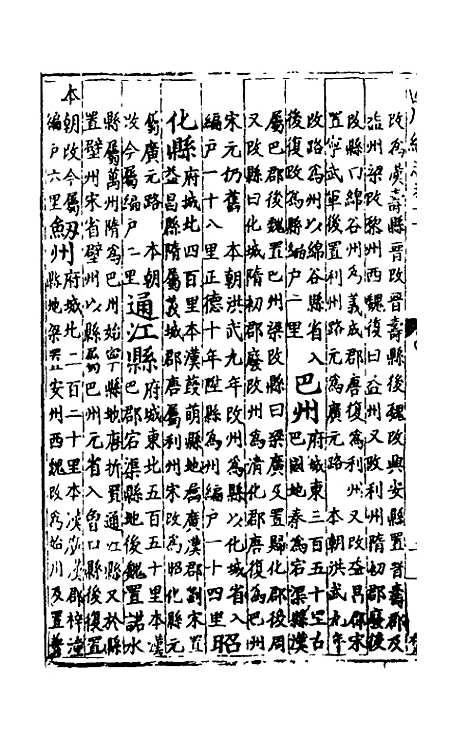 改爲廣壽縣晉改晉壽縣後魏改興安縣置晉壽郡及
益州梁改黎州西魏復曰益州又改利州隋初郡廢後
改縣曰綿谷州爲義成郡唐復爲利州又改益昌郡宋
置寧武軍後置利州路元爲廣元路　本朝洪武九年
改路爲州以綿谷縣省入巴州府城東三百五十里古
後復改爲縣編户二里巴國地秦爲宕渠縣漢
屬巴郡後魏置巴州梁改縣曰梁廣又置歸化郡後周
又改縣曰化城隋初郡廢改州爲清化郡唐復爲巴州
宋元仍舊　本朝洪武九年改州爲縣以化城省入
編户一十八里正德十年陞縣爲州編户一十四里昭
化縣府城北四百里本葭萌縣地屬廣漢郡劉宋置
益昌縣隋屬義城郡唐屬利州宋改爲昭化縣元
屬廣元路　本朝通江縣府城東北五百五十里本漢
改今屬編户二里巴郡宕渠縣地後魏置諾水
縣屬萬州隋爲巴州始寧縣地唐析置通江縣又於縣
置壁州宋省壁州以縣屬巴州元省入曾口縣後復置
本朝改今屬劒州府城北二百二十里本漢廣漢郡梓潼
編户六里縣地梁置安州西魏改爲始州及置普